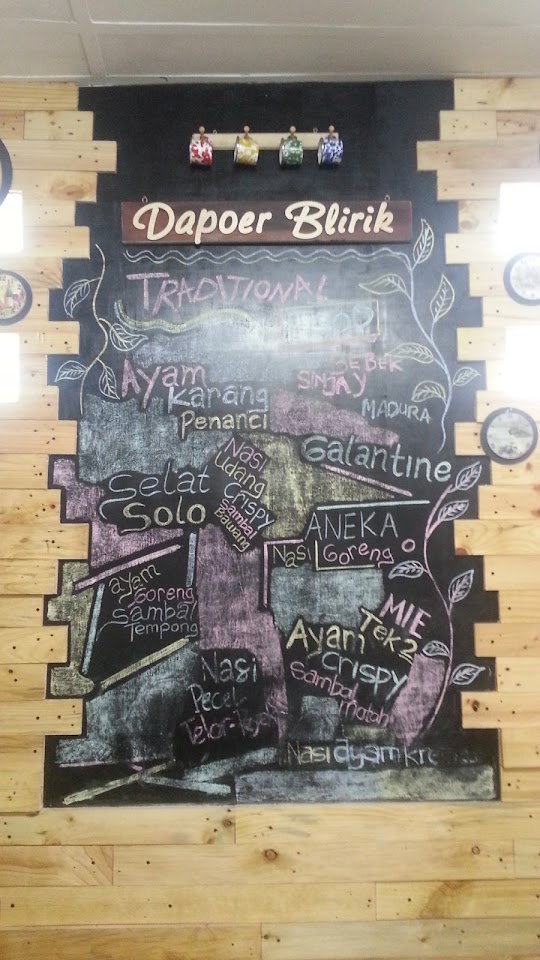 Dapoer Blirik
TRADITIONAL
Ayam
Karang
Penanci
BEBEK
SINJAY
MADURA
Nasi
Udang
Crispy
Sambal
Bawang
Galantine
Selat
Solo
ANEKA
Nasi Goreng
ayam
Goreng
Sambal
Tempong
MIE
TEK2
Ayam
Crispy
Sambal
matah
Nasi
Pecel
Telor
Nasi ayam